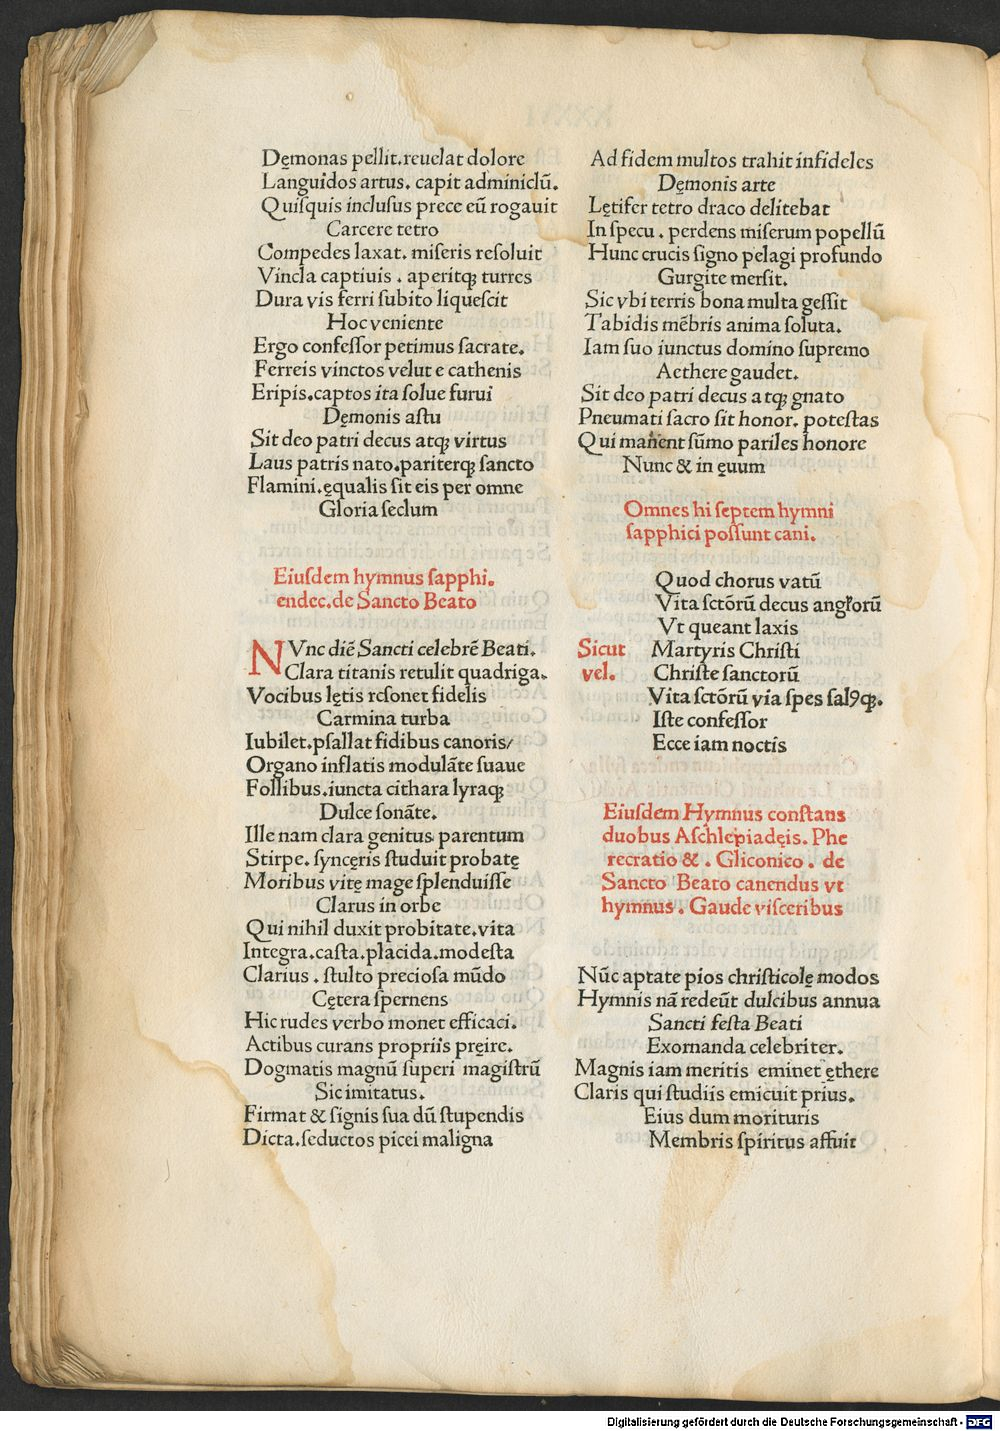 Dęmonas pellit.reuelat dolore
Languidos artus. capit adminiclū.
Quiſquis incluſus prece eū rogauit
Carcere tetro
Compedes laxat. miſeris reſoluit
Vincla captiuis . aperitqꝫ turres
Dura vis ferri ſubito liqueſcit
Hoc veniente
Ergo confeſſor petimus ſacrate.
Ferreis vinctos velut e cathenis
Eripis.captos ita ſolue furui
Dęmonis aſtu
Sit deo patri decus atqꝫ virtus
Laus patris nato.pariterqꝫ ſancto
Flamini.ęqualis ſit eis per omne
Gloria ſeclum
Eiuſdem hymnus ſapphi.
endec.de Sancto Beato
NVnc diē Sancti celebrē Beati.
Clara titanis retulit quadriga.
Vocibus lętis reſonet fidelis
Carmina turba
Iubilet.pſallat fidibus canoris/
Organo inflatis modulāte ſuaue
Follibus.iuncta cithara lyraqꝫ
Dulce ſonāte.
Ille nam clara genitus parentum
Stirpe. ſyncęris ſtuduit probatę
Moribus vitę mage ſplenduiſſe
Clarus in orbe
Qui nihil duxit probitate.vita
Integra.caſta.placida.modeſta
Clarius . ſtulto precioſa mūdo
Cętera ſpernens
Hic rudes verbo monet efficaci.
Actibus curans propriis pręire.
Dogmatis magnū ſuperi magiſtrū
Sic imitatus.
Firmat & ſignis ſua dū ſtupendis
Dicta.ſeductos picei maligna
Ad fidem multos trahit infideles
Dęmonis arte
Lętifer tetro draco delitebat
In ſpecu . perdens miſerum popellū
Hunc crucis ſigno pelagi profundo
Gurgite merſit.
Sic vbi terris bona multa geſſit
Tabidis mēbris anima ſoluta.
Iam ſuo iunctus domino ſupremo
Aethere gaudet.
Sit deo patri decus atqꝫ gnato
Pneumati ſacro ſit honor. poteſtas
Qui manent ſūmo pariles honore
Nunc & in ęuum
Omnes hi ſeptem hymni
ſapphici poſſunt cani.
Quod chorus vatū
Vita ſctōrū decus angƚorū
Vt queant laxis
Sicut Martyris Chriſti
vel. Chriſte ſanctorū
Vita ſctōrū via ſpes ſalꝯqꝫ.
Iſte confeſſor
Ecce iam noctis
Eiuſdem Hymnus conſtans
duobus Aſchlepiadęis. Phe
recratio & . Gliconico . de
Sancto Beato canendus vt
hymnus . Gaude viſceribus
Nūc aptate pios chriſticolę modos
Hymnis nā redeūt dulcibus annua
Sancti feſta Beati
Exornanda celebriter.
Magnis iam meritis eminet ęthere
Claris qui ſtudiis emicuit prius.
Eius dum morituris
Membris ſpiritus affuit
Digitalisierung gefördert durch die Deutsche Forschungsgemeinschaft - DFG